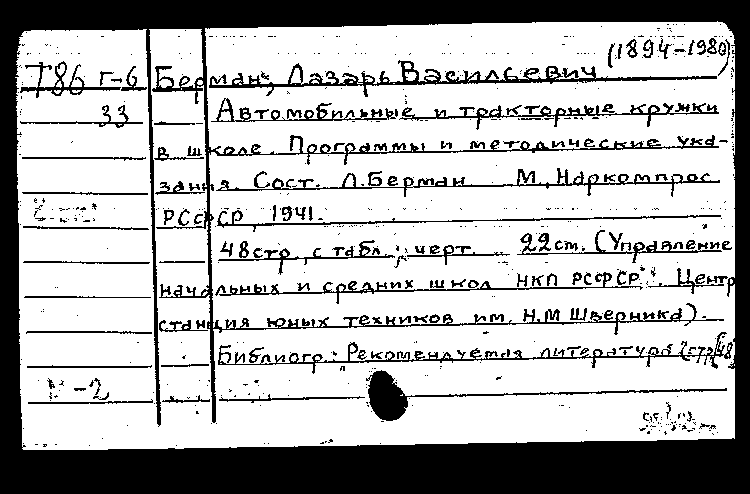 (1894-1980)
Т86 Г-6 Берман, Лазарь Васильевич
33 Автомобильные и тракторные кружки
в школе. Программы и методические ука-
зания. Сост. Л.Берман М., Наркомпрос
РСФСР, 1941.
48 стр., с табл.; черт. 22 см. (Управление
начальных и средних школ НКП РСФСР. Центр
станция юных техников им. Н.М Шверника).
Библиогр.: "Рекомендуемая литература" 2 стр [48]
-2